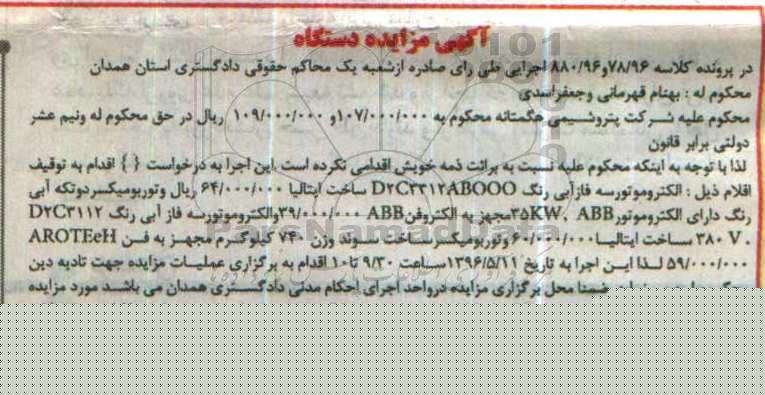 آگهی مزایده دستگاه
در پرونده کلاسه ۷۸/۹۶و۸۸۰/۹۶ اجرایی طی رای صادره ازشعبه یک محاکم حقوقی دادگستری استان همدان
محکوم له : بهنام قهرمانی وجعفراسدی
محکوم علیه شرکت پتروشیمی هگمتانه محکوم به ۱۰۷/۰۰۰/۰۰۰و ۱۰۹/۰۰۰/۰۰۰ ریال در حق محکوم له ونیم عشر
دولتی برابر قانون
لذا با توجه به اینکه محکوم علیه نسبت به برائت ذمه خویش اقدامی نکرده است .این اجرا به درخواست { } اقدام به توقیف
اقلام ذیل : الکتروموتورسه فازآبی رنگ D۲C۳۳۱۲ABOOO ساخت ایتالیا ۶۴/۰۰۰/۰۰۰ ریال وتوربومیکسردوتکه آبی
رنگ دارای الکتروموتور ۳۵KW, ABBمجهز به الکتروفن ABB ۳۹/۰۰۰/۰۰۰والکتروموتورسه فاز آبی رنگ D۲C۳۱۱۲
۳۸۰ V. ساخت ایتالیا۶۰/۰۰۰/۰۰۰ وتوربومیکسرساخت سوئد وزن ۷۴۰ کیلوگرم مجهز به فن AROTEeH
۵۹/۰۰۰/۰۰۰ لذا این اجرا به تاریخ ۱۳۹۶/۵/۱۱ساعت ۹/۳۰ تا۱۰ اقدام به برگزاری عملیات مزایده جهت تادیه دین
ضمنا محل برگزاری مزایده درواحد اجرای احکام مدنی دادگستری همدان می باشد مورد مزایده
101
ParsNamadData